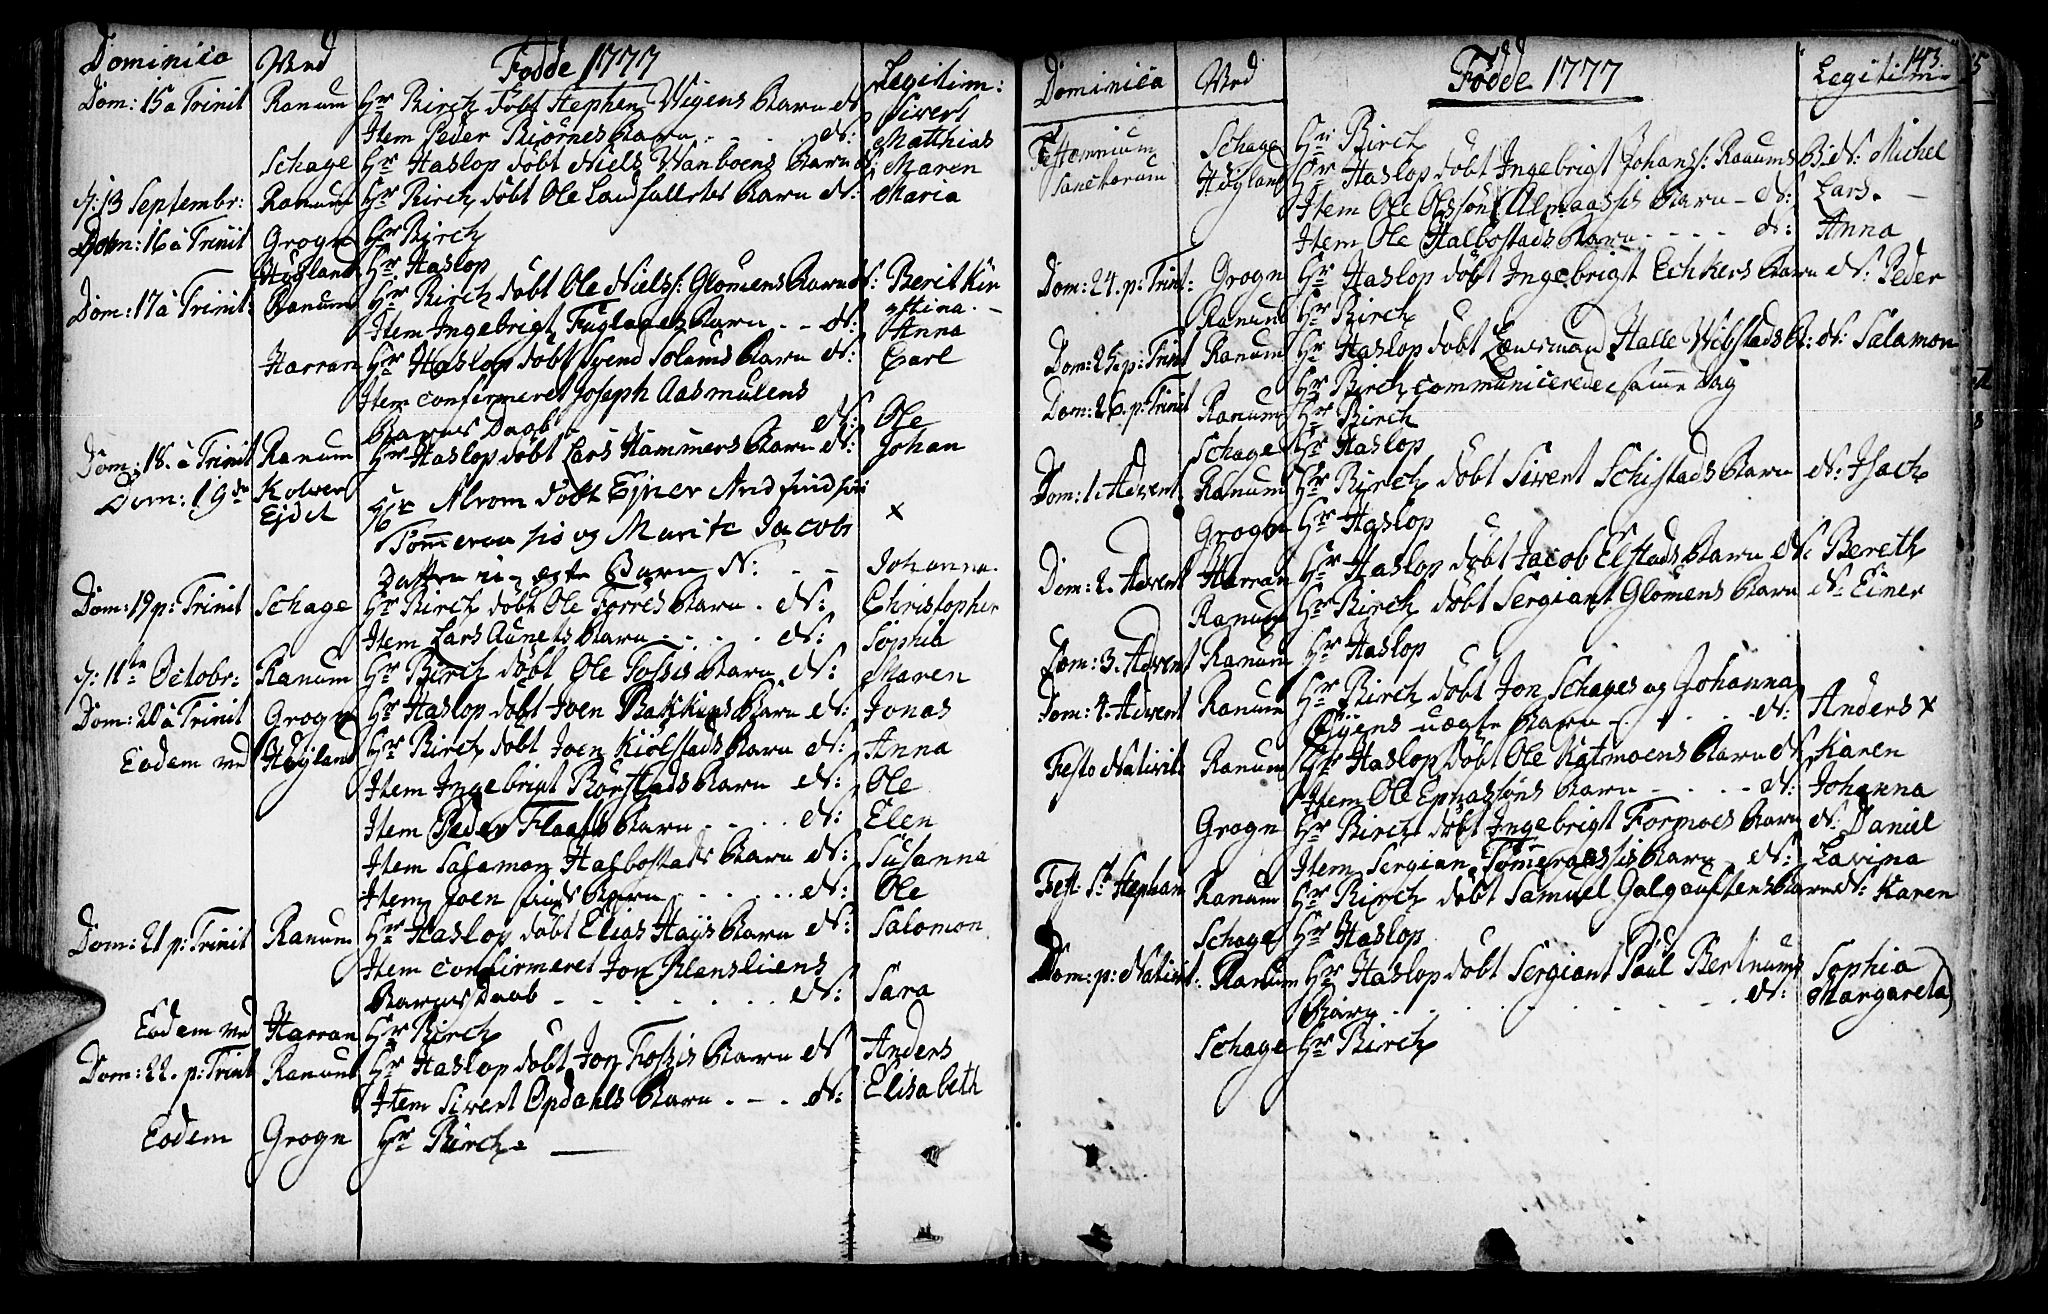 Dominica Ved Födde 1777 Legitim:
Dom: 15 à Trinit Ranum Hr Birch döbt Stephen Wigens Barn N: Sivert
Item Peder Biörnes Barn . . . . N: Matthias
Schage Hr Haslop döbt Niels Wanboens Barn N: Maren
d: 13 Septembr: Ranum Hr Birch döbt Ole Landfalletes Barn N: Maria
Dom: 16 à Trinit Grogn Hr Birch
Höyland Hr Haslop
Dom: 17 à Trinit Ranum Hr Birch döbt Ole Niels: Glömens Barn N: Berit Kir
stina. -
Item Ingebrigt Fuglanes Barn . . N: Anna
Harran Hr Haslop döbt Svend Solums Barn N: Carl
Item confirmeret Joseph Aasmulens
Barnes Daab N: Ole
Dom: 18. à Trinit Ranum Hr Haslop döbt Lars Hammers Barn N: Johan
Dom: 19de Kolver Hr Alrom döbt Ejner
Ejdet Tömeraasis og Marite Jacobs x
Datters uægte Barn N: - - Johanna.
Dom: 19 p: Trinit Schage Hr Birch döbt Ole Forres Barn . N: Christopher
Item Lars Aunets Barn . . . . N: Sophia
d: 11te Octobr: Ranum Hr Birch döbt Ole Fossis Barn . N: Maren
Dom: 20 à Trinit Grogn Hr Haslop döbt Joen Barn N: Jonas
Eodem ved Höyland Hr Birch döbt Joen Kiölstads Barn N: Anna
Item Ingebrigt Börstads Barn N: Ole
Item Peder Flaats Barn . . . . N: Elen
Item Salamon Halbostads Barn N: Susanna
Item Joen Barn . . . . . N: Ole
Dom: 21 p: Trinit Ranum Hr Haslop döbt Elias Häys Barn N: Salomon
Item confirmeret Jon Klensliens
Barnes Daab - - - - - - N: Sara
Eodem ved Harran Hr Birch
Dom: 22. p: Trinit Ranum Hr Haslop döbt Jon Fossis Barn N Anders
Item Sivert Opdahls Barn . - . N: Elisabeth
Eodem Grogn Hr Birch.
143.
Dominica Ved Födde 1777 Legitim:
Festo omnium Schage Hr Birch
Sanctorum Höyland Hr Haslop döbt Ingebrigt Johans: Ranums B: N: Michel
Item Ole Olssöns Almaassis Barn - N: Lars. -
Item Ole Halbostads Barn . . . . N: Anna
Dom: 24. p: Trint: Grogn Hr Haslop döbt Ingebrigt Echkers Barn N: Peder
Ranum Hr Birch
Dom: 25. p: Trint Ranum Hr Haslop döbt Lænsmand Halle Vibstads B: N: Salamon
Hr Birch communicerede samme Dag
Dom: 26. p: Trinit Ranum Hr Birch
Schage Hr Haslop
Dom: 1. Advent Ranum Hr Birch döbt Sivert Schistads Barn N: Isach
Grogn Hr Haslop
Dom: 2. Advent Harran Hr Haslop döbt Jacob Elstads Barn N: Bereth
Ranum Hr Birch döbt Sergiant Glömens Barn N: Einer
Dom: 3. Advent Ranum Hr Haslop
Dom: 4. Advent Ranum Hr Birch döbt Jon Schages og Johanna
Öyens uægte Barn - . . . . N: Anders x
Festo Nativit: Ranum Hr Haslop döbt Ole Katmoens Barn N: Karen
Item Ole Barn - . . . N: Johanna
Grogn Hr Birch döbt Ingebrigt Formoes Barn N: Daniel
Item Sergian Tömeraassis Barn - N: Lavina
Fest St Stephan Ranum Hr Birch döbt Samuel Galgauftens Barn N: Karen
Schage Hr Haslop
Dom: p: Nativit: Ranum Hr Haslop döbt Sergiant Paul Bertnums Sophia
Barn . . . . . . . . . N: Margareta
Schage Hr Birch